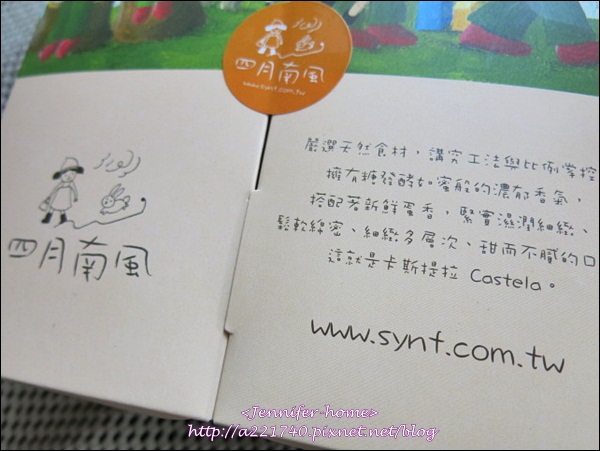 四月南風
www.synf.com.tw
四月南風
嚴選天然食材，講究工法與比例掌控
擁有糖發酵如蜜般的濃郁香氣，
搭配著新鮮蛋香，緊實濕潤細緻、
鬆軟綿密、細緻多層次、甜而不膩的口
這就是卡斯提拉 Castela。
www.synf.com.tw
<Jennifer-home>
http://a221740.pixnet.net/blog